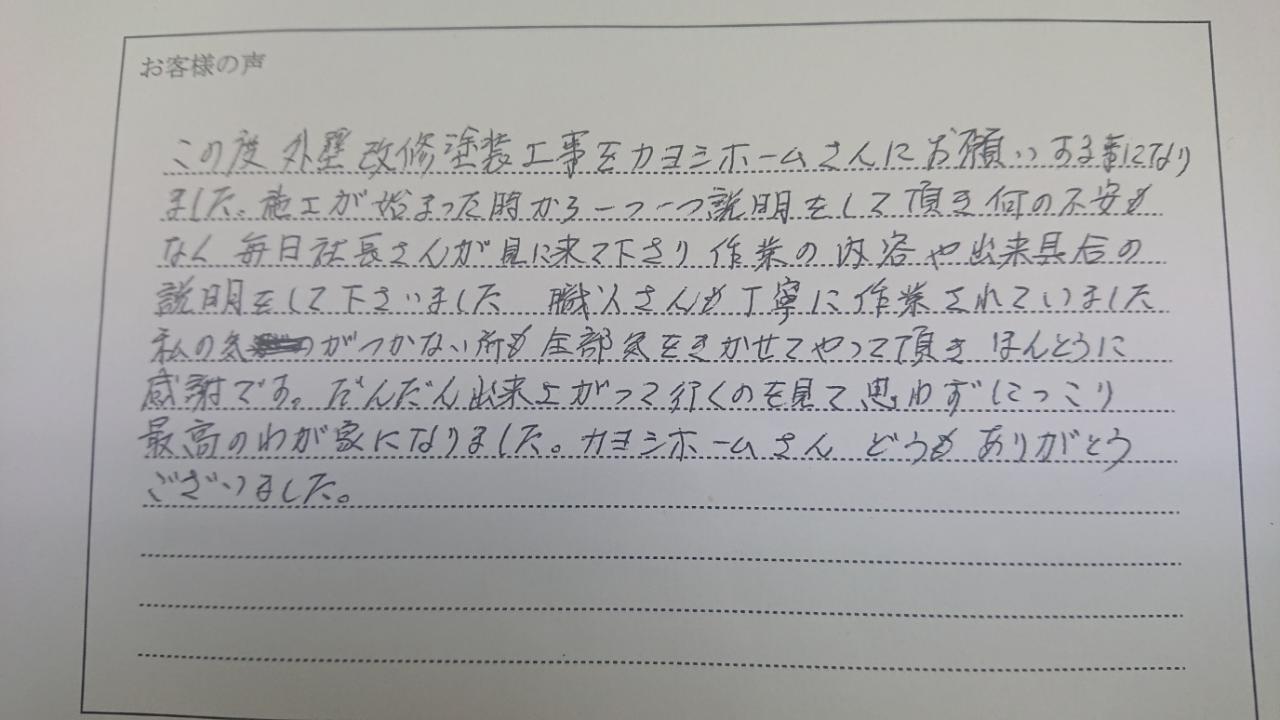 お客様の声
この度 外壁改修塗装工事をカヨシホームさんにお願いする事になり
ました。施工が始まった時から一つ一つ説明をして頂き何の不安も
なく 毎日社長さんが見に来て下さり 作業の内容や出来具合の
説明をして下さいました 職人さんも丁寧に作業されていました
私の気がつかない所も全部気をきかせてやって頂き ほんとうに
感謝です。だんだん出来上がって行くのを見て思わずにっこり
最高のわが家になりました。カヨシホームさん どうも ありがとう
ございました。